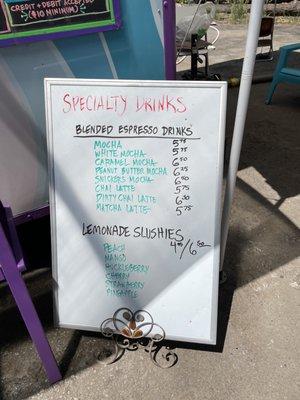 CREDIT + DEBIT ACCEPTED
($10 MINIMUM)
SPECIALTY DRINKS
BLENDED ESPRESSO DRINKS
MOCHA
WHITE MOCHA
CARAMEL MOCHA
PEANUT BUTTER MOCHA
SNICKERS MOCHA
CHAI LATTE
DIRTY CHAI LATTE
MATCHA LATTE
LEMONADE SLUSHIES
PEACH
MANGO
HUCKLEBERRY
CHERRY
STRAWBERRY
PINEAPPLE